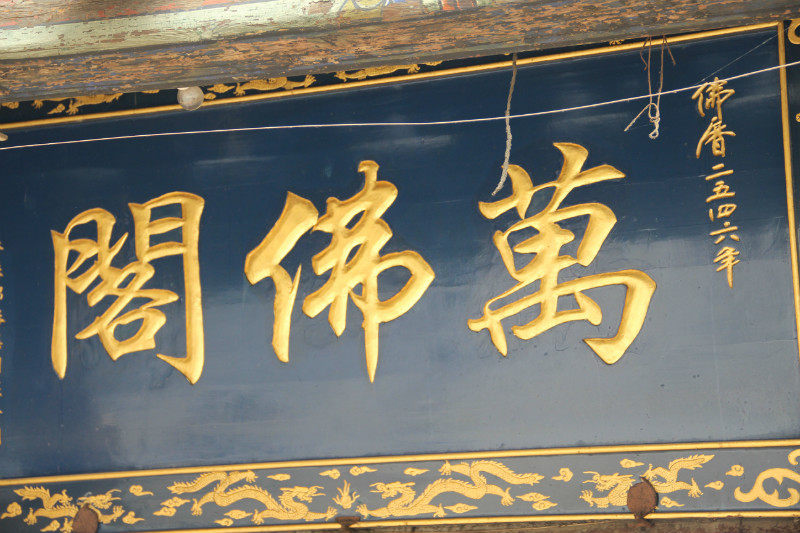 佛曆二五四六年
萬佛閣